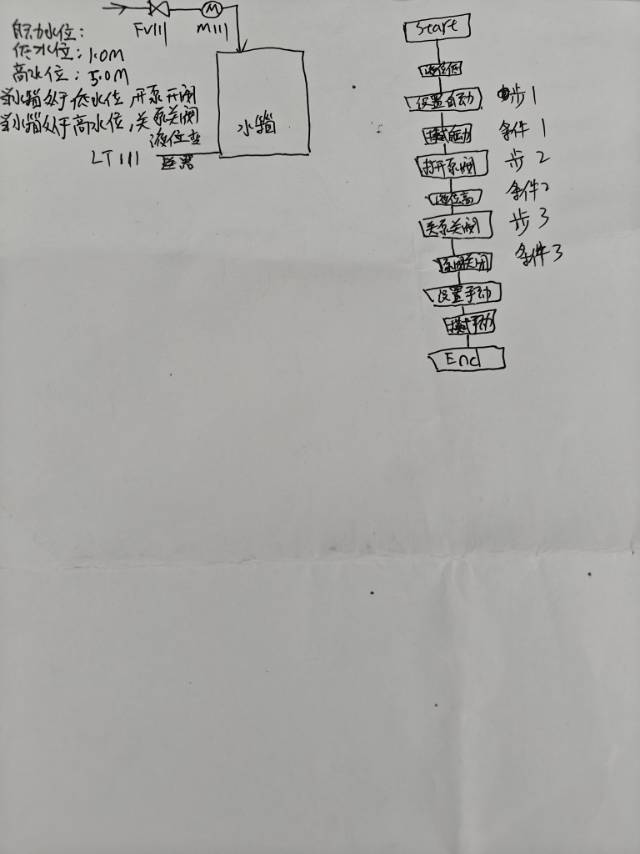 FV111 M111
水位:
低水位:1.0M
高水位:5.0M
当水箱处于低水位,开泵开阀
当水箱处于高水位,关泵关阀
水箱
液位变
LT111 送器
Start
液位低
设置自动 步1
模式自动 条件1
打开泵阀 步2
液位高 条件2
关泵关阀 步3
泵阀关闭 条件3
设置手动
模式手动
End